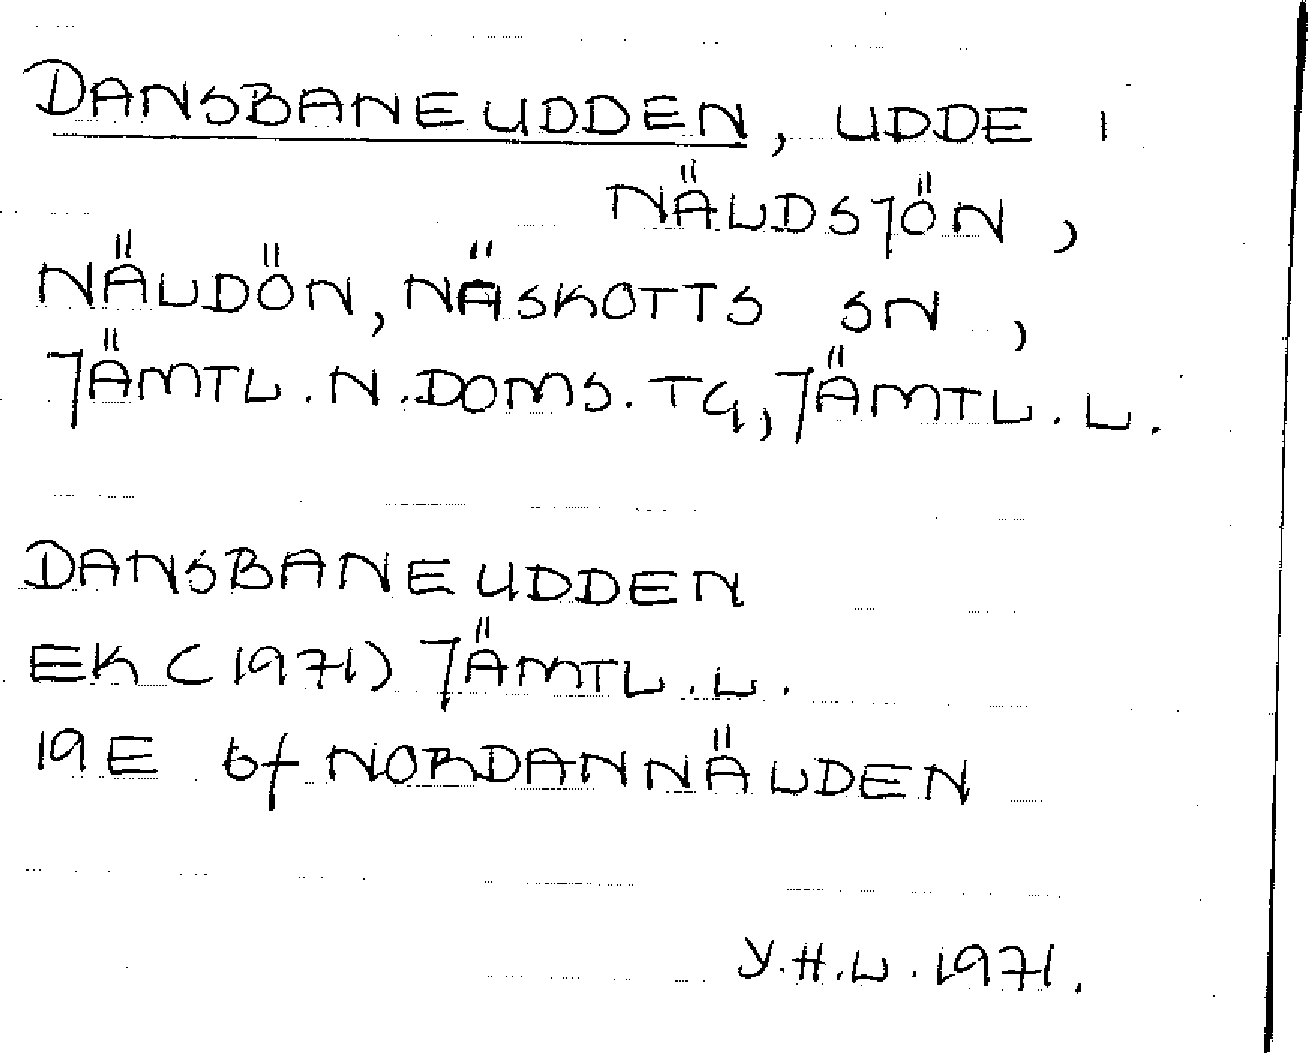 DANSBANEUDDEN, UDDE I
NÄLDSJÖN,
NÄLDÖN, NÄSKOTTS SN,
JÄMTL. N. DOMS. TG, JÄMTL. L.
DANSBANEUDDEN
EK (1971) JÄMTL. L.
19E 6f NORDANNÄLDEN
Y. H. L. 1971.